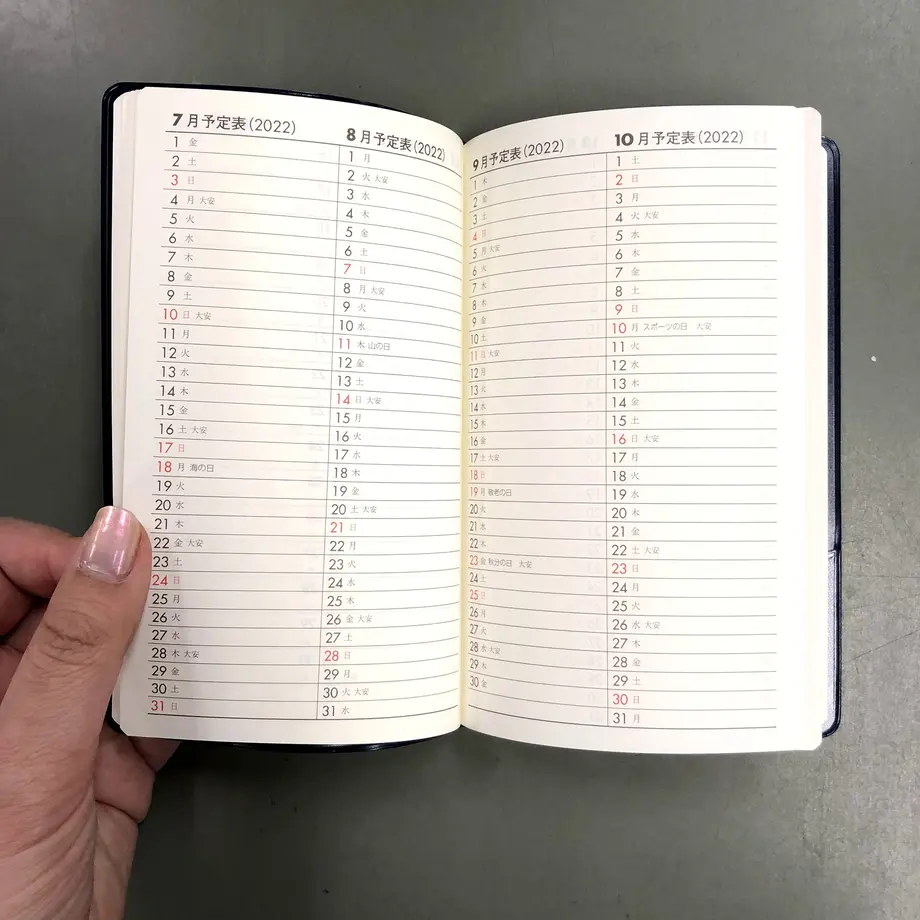 7月予定表(2022)
1 金
2 土
3 日
4 月 大安
5 火
6 水
7 木
8 金
9 土
10 日 大安
11 月
12 火
13 水
14 木
15 金
16 土 大安
17 日
18 月 海の日
19 火
20 水
21 木
22 金 大安
23 土
24 日
25 月
26 火
27 水
28 木 大安
29 金
30 土
31 日
8月予定表(2022)
1 月
2 火 大安
3 水
4 木
5 金
6 土
7 日
8 月 大安
9 火
10 水
11 木 山の日
12 金
13 土
14 日 大安
15 月
16 火
17 水
18 木
19 金
20 土 大安
21 日
22 月
23 火
24 水
25 木
26 金 大安
27 土
28 日
29 月
30 火 大安
31 水
9月予定表(2022)
1 木
2 金
3 土
4 日
5 月 大安
6 火
7 水
8 木
9 金
10 土
11 日 大安
12 月
13 火
14 水
15 木
16 金
17 土 大安
18 日
19 月 敬老の日
20 火
21 水
22 木
23 金 秋分の日 大安
24 土
25 日
26 月
27 火
28 水 大安
29 木
30 金
10月予定表(2022)
1 土
2 日
3 月
4 火 大安
5 水
6 木
7 金
8 土
9 日
10 月 スポーツの日 大安
11 火
12 水
13 木
14 金
15 土
16 日 大安
17 月
18 火
19 水
20 木
21 金
22 土 大安
23 日
24 月
25 火
26 水 大安
27 木
28 金
29 土
30 日
31 月